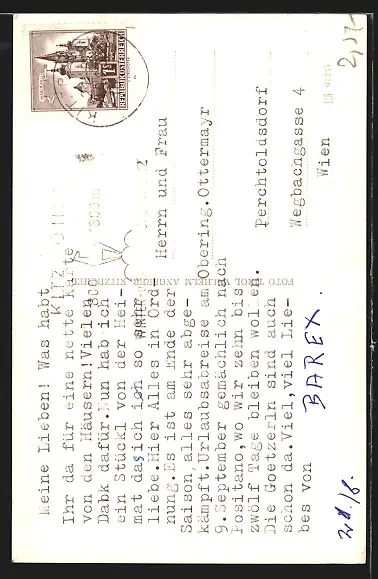 Meine Lieben! Was habt
Ihr da für eine nette Karte
von den Häusern!Vielen
Dabk dafür.Nun hab ich
ein Stückl von der Hei-
mat dasich ich so sehr
liebe.Hier Alles in Ord
nung.Es ist am Ende der
Saison,alles sehr abge-
kämpft.Urlaubsabreise am
9.September gemächlich nach
Positano,wo wir zehn bis
zwölf Tage bleiben wollen.
Die Goetzerln sind auch
schon da.Viel,viel Lie-
bes von
BAREX.
Herrn und Frau
Obering.Ottermayr
Perchtoldsdorf
Wegbachgasse 4
Wien
REPUBLIK ÖSTERREICH